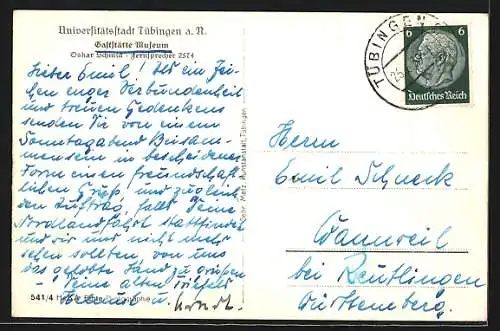 Universitätsstadt Tübingen a. N.
Gaststätte Museum
Oskar Schmid - Fernsprecher 2574
Lieber Emil! Als ein Zei-
chen enger Verbundenheit
und treuen Gedenkens
senden Dir von einem
Sonntagabend Beisam-
mensein in bescheidener
Form einen freundschaft-
lichen Gruß und zugleich
den Auftrag, falls Deine
Nordlandfahrt stattfindet
und wir uns nicht mehr
sehen sollten, von uns
das gelobte Land zu grüßen
Deine alten
u.
541/4
Gebr. Metz, Kunstanstalt, Tübingen
TÜBINGEN
6 6
Deutsches Reich
Herrn
Emil Schneck
Wannweil
bei Reutlingen
Württemberg.